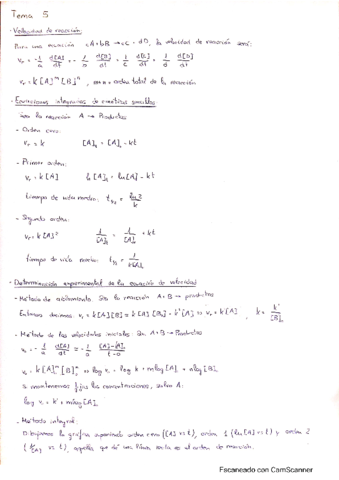 Tema 5
- Velocidad de reacción
Para una reacción aA + bB → cC + dD, la velocidad de reacción será:
v_r = - 1/a d[A]/dt = - 1/b d[B]/dt = 1/c d[C]/dt = 1/d d[D]/dt
v_r = k [A]^m [B]^n, m+n = orden total de la reacción
- Ecuaciones integradas de cinéticas sencillas
la reacción A → Productos
- Orden cero:
v_r = k [A]_t = [A]_0 - kt
- Primer orden:
v_r = k [A] ln [A]_t = ln [A]_0 - kt
tiempo de vida media: t_1/2 = ln 2 / k
- Segundo orden:
v_r = k [A]² 1/[A]_t = 1/[A]_0 + kt
tiempo de vida media: t_1/2 = 1/k[A]_0
- Determinación experimental de la ecuación de velocidad
- Método de aislamiento. Sea la reacción A + B → productos
Entonces v_r = k [A] [B] = k [A] [B]_0 = k' [A] v_r = k' [A], k = k'/[B]_0
- Método de las velocidades iniciales. A + B → Productos
v_0 = - 1/a d[A]/dt = - 1/a
v_0 = k [A]_0^m [B]_0^n log v_0 = log k + m log [A]_0 + n log [B]_0
Si mantenemos las concentraciones, salvo A:
log v_0 = k' + m log [A]_0
- Método integral:
la gráfica suponiendo orden cero ([A] vs t), orden 1 (ln [A] vs t) y orden 2
(1/[A] vs t), aquella que dé una línea recta es el orden de reacción.
Escaneado con CamScanner